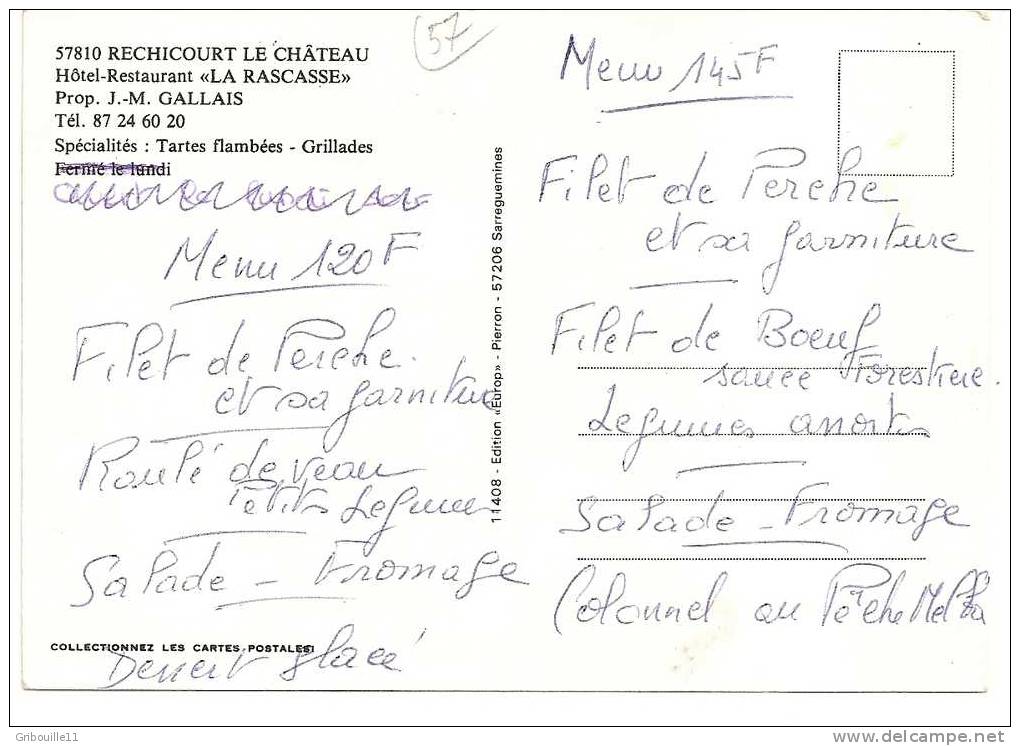 57
57810 RECHICOURT LE CHÂTEAU
Hôtel-Restaurant «LA RASCASSE»
Prop. J.-M. GALLAIS
Tél. 87 24 60 20
Spécialités : Tartes flambées - Grillades
Fermé le lundi
Menu 120F
Filet de Perche.
et sa garniture
Roulé de veau
Petits Legumes
Salade - Fromage
Dessert glacé
COLLECTIONNEZ LES CARTES POSTALES!
11408 - Edition «Europ» - Pierron - 57206 Sarreguemines
Menu 145F
Filet de Perche
et sa garniture
Filet de Boeuf
sauce Forestiere.
Legumes assortis
Salade - Fromage
Colonnel ou Pêche Melba
Gribouille11
http://www.delcampe.net